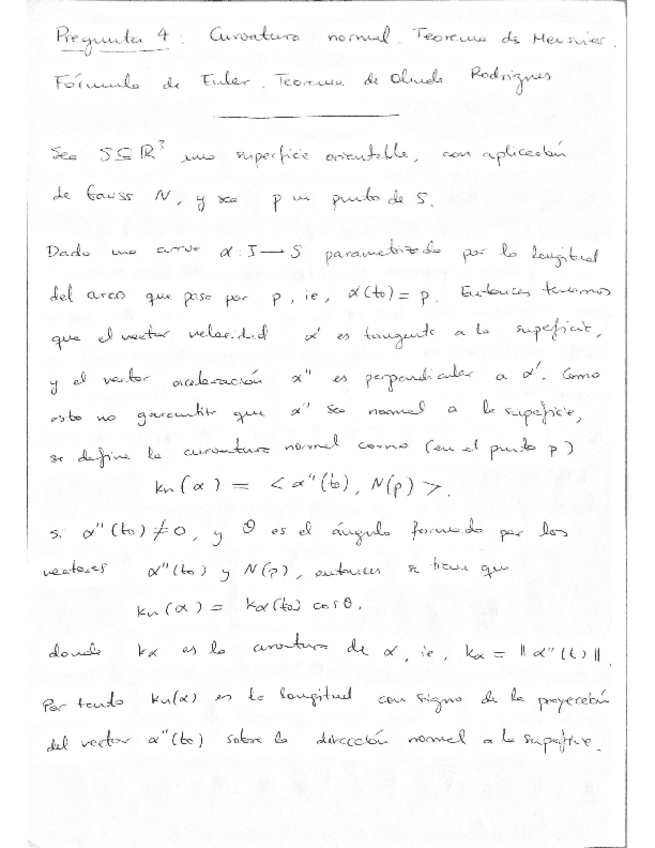 Pregunta 4: Curvatura normal. Teorema de Meusnier.
Fórmula de Euler. Teorema de Olinde Rodrigues
Sea S⊆ℝ³ una superficie orientable, con aplicación
de Gauss N, y sea p un punto de S.
Dada una curva α: I→S parametrizada por la longitud
del arco que pase por p, ie, α(t₀)=p. Entonces tenemos
que el vector velocidad α' es tangente a la supeficie,
y el vector aceleración α'' es perpendicular a α'. Como
esto no garantiza que α'' sea normal a la supeficie,
se define la curvatura normal como (en el punto p)
kn(α) = <α''(t₀), N(p)>.
si α''(t₀)≠0, y θ es el ángulo formado por los
vectores α''(t₀) y N(p), entonces se tiene que
kn(α) = kα(t₀) cosθ.
donde kα es la curvatura de α, ie, kα = ‖α''(t)‖.
Por tanto kn(α) es la longitud con signo de la proyección
del vector α''(t₀) sobre la dirección normal a la supeficie.